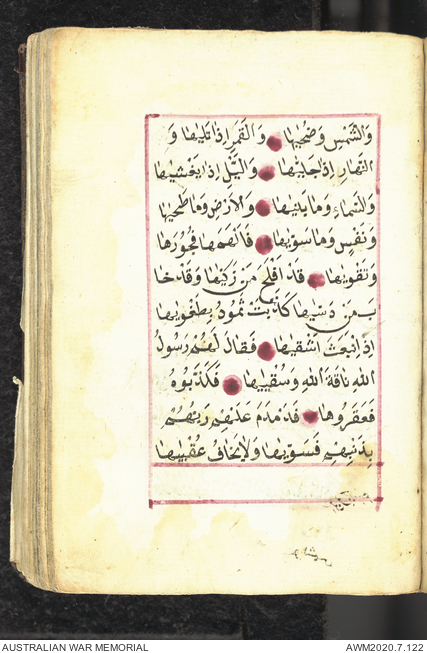 وَالشَّمْسِ وَضُحَيٰهَا وَالْقَمَرِ اِذَا تَلَيٰهَا وَ
النَّهَارِ اِذَا جَلَّيٰهَا وَالَّيْلِ اِذَا يَغْشَيٰهَا
وَالسَّمَاءِ وَمَا بَنَيٰهَا وَالْاَرْضِ وَمَا طَحَيٰهَا
وَنَفْسٍ وَمَا سَوّٰيهَا فَاَلْهَمَهَا فُجُورَهَا
وَتَقْوٰيهَا قَدْ اَفْلَحَ مَنْ زَكّٰيهَا وَقَدْ خَا
بَ مَنْ دَسّٰيهَا كَذَّبَتْ ثَمُودُ بِطَغْوٰيهَا
اِذِ انْبَعَثَ اَشْقٰيهَا فَقَالَ لَهُمْ رَسُولُ
اللّٰهِ نَاقَةَ اللّٰهِ وَسُقْيٰيهَا فَكَذَّبُوهُ
فَعَقَرُوهَا فَدَمْدَمَ عَلَيْهِمْ رَبُّهُمْ
بِذَنْبِهِمْ فَسَوّٰيهَا وَلَا يَخَافُ عُقْبٰيهَا
AUSTRALIAN WAR MEMORIAL
AWM2020.7.122